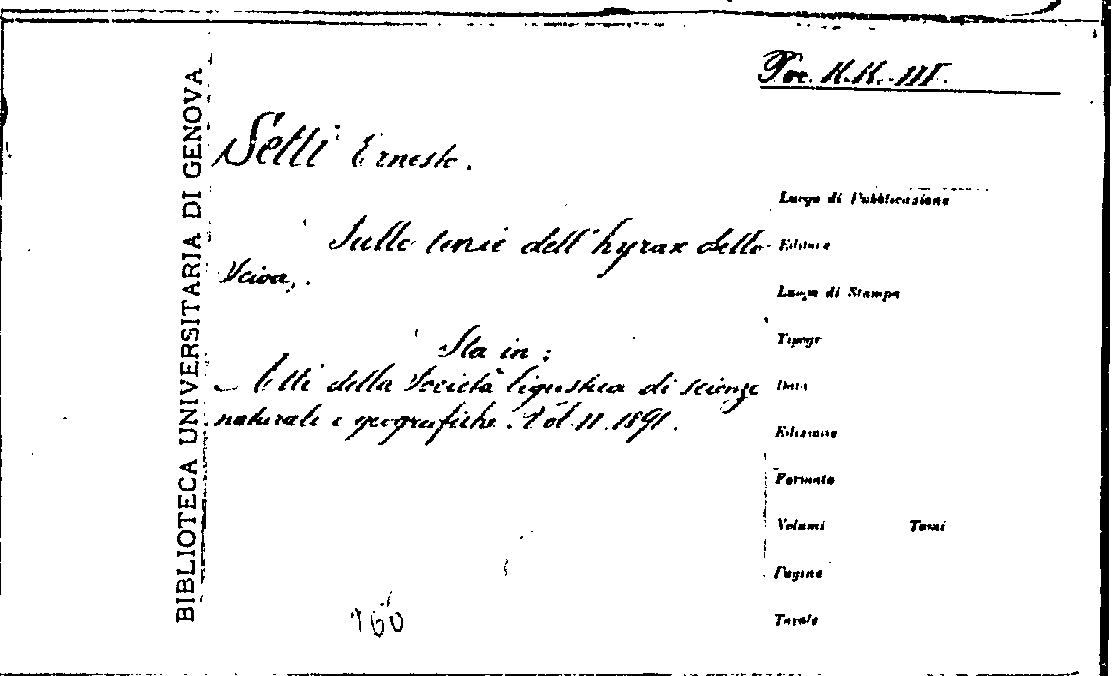 Per. K.K. III.
BIBLIOTECA UNIVERSITARIA DI GENOVA
Setti Ernesto.
Sulle tenie dell'hyrax dello
Scioa,.
Sta in:
Atti della Società ligustica di scienze
naturali e geografiche. Vol. II. 1891.
Luogo di Pubblicazione
Editore
Luogo di Stampa
Tipogr
Data
Edizione
Formato
Volumi Tomi
Pagine
Tavole
160